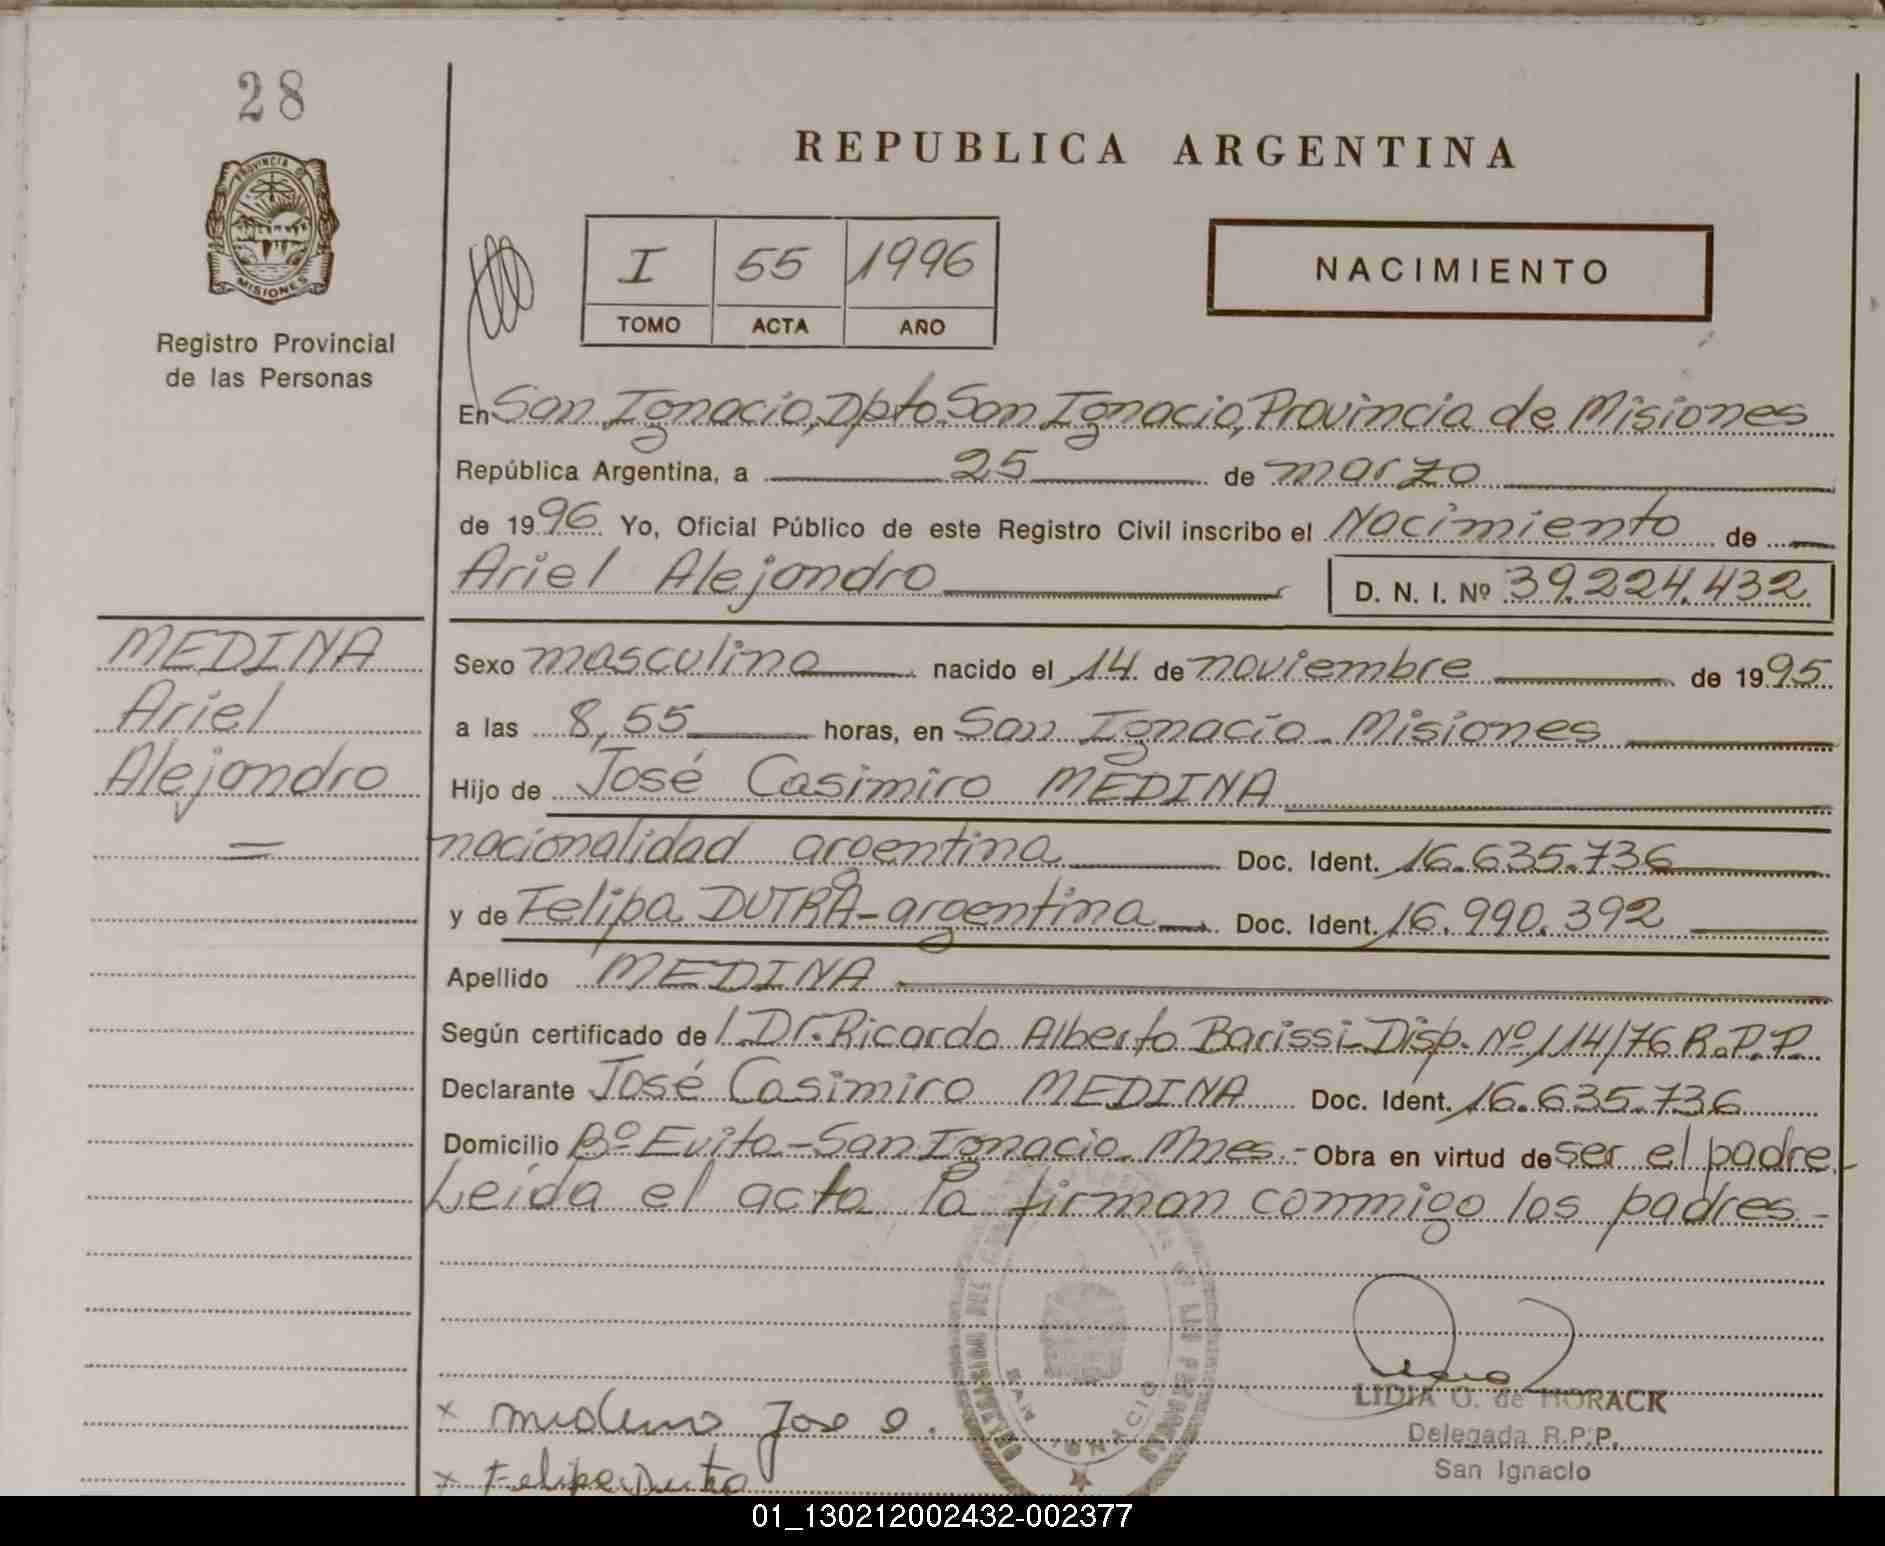 28
PROVINCIA DE
MISIONES
Registro Provincial
de las Personas
REPUBLICA ARGENTINA
I 55 1996
TOMO ACTA AÑO
NACIMIENTO
En San Ignacio, Dpto. San Ignacio, Provincia de Misiones
República Argentina, a 25 de marzo
de 1996 Yo, Oficial Público de este Registro Civil inscribo el Nacimiento de
Ariel Alejandro D. N. I. Nº 39.224.432
MEDINA
Ariel
Alejandro
Sexo masculino nacido el 14 de noviembre de 1995
a las 8,55 horas, en San Ignacio - Misiones
Hijo de José Casimiro MEDINA
nacionalidad argentina Doc. Ident. 16.635.736
y de Felipa DUTRA - argentina Doc. Ident. 16.990.392
Apellido MEDINA
Según certificado de l Dr. Ricardo Alberto Barissi - Disp. Nº 114/76 R.P.P.
Declarante José Casimiro MEDINA Doc. Ident. 16.635.736
Domicilio Bº Evita - San Ignacio - Mnes. - Obra en virtud de ser el padre.-
Leída el acta la firman conmigo los padres.-
SAN IGNACIO
LIDIA O. de HORACK
Delegada R.P.P.
San Ignacio
x Jose
x Felipe Dutra
01_130212002432-002377